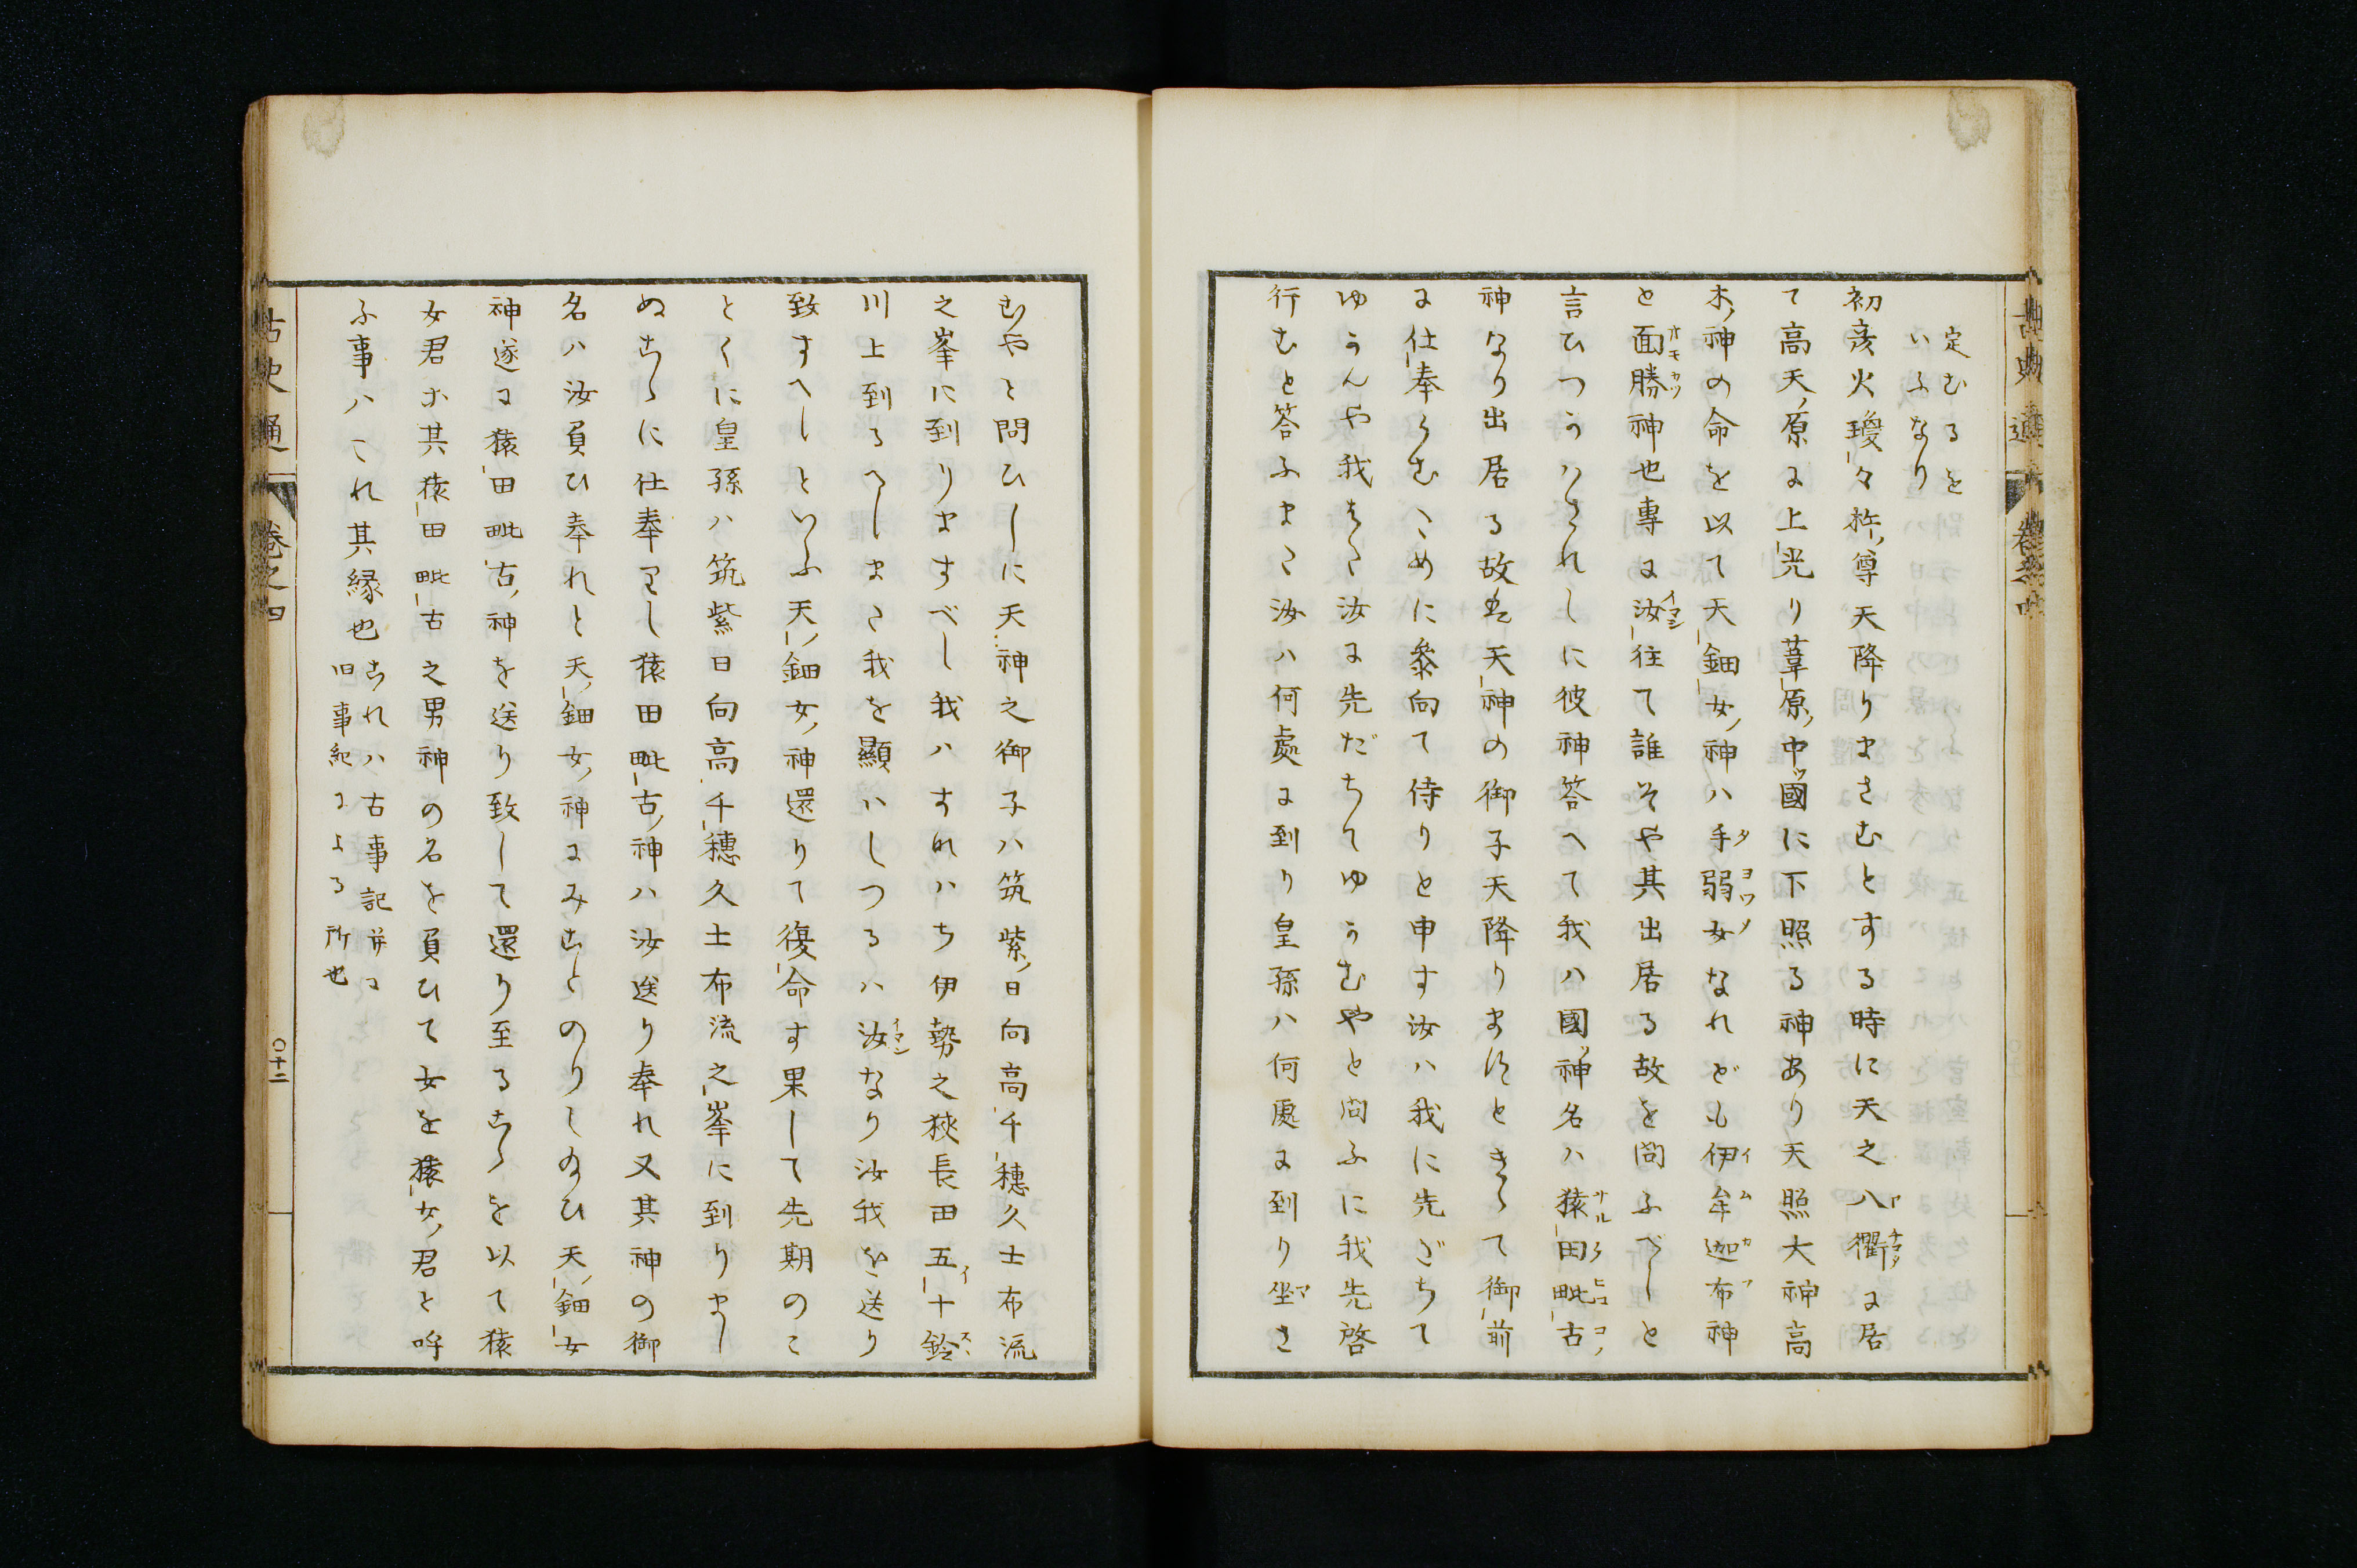 定むるを
いふなり
初彦火瓊々杵尊天降りまさむとする時に天之八衢に居
て高天原に上光り葦原中國に下照る神あり天照大神高
木神の命を以て天鈿女神ハ手弱女なれども伊牟迦布神
と面勝神也專に汝往て誰そや其出居る故を問ふべしと
言ひつかハされしに彼神答へて我ハ國神名ハ猿田毗古
神なり出居る故は天神の御子天降りますときゝて御前
に仕奉らむためにまゐ向て侍りと申す汝ハ我に先だちて
ゆかんや我また汝に先だちてゆかむやと問ふに我先啓
行むと答ふまた汝ハ何處に到り皇孫ハ何處に到り坐さ
むやと問ひしに天神之御子ハ筑紫日向高千穗久士布流
之峯に到りますべし我ハすなハち伊勢之狹長田五十鈴
川上到るへしまた我を顯ハしつるハ汝なり汝我を送り
致すへしといふ天鈿女神還りて復命す果して先期のこ
とくに皇孫ハ筑紫日向高千穗久士布流之峯に到りまし
ぬこゝに仕奉りし猿田毗古神ハ汝送り奉れ又其神の御
名ハ汝負ひ奉れと天鈿女神にみことのりし給ひ天鈿女
神遂に猿田毗古神を送り致して還り至るこゝを以て猿
女君等其猿田毗古之男神の名を負ひて女を猿女君と呼
ふ事ハこれ其縁也
これハ古事記并に
旧事紀による所也
古史通
卷之四
〇十二